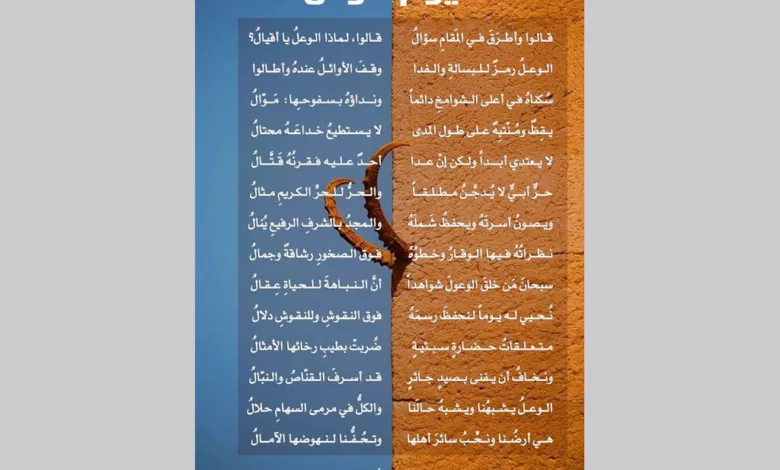 قالوا وأطرَقَ في المُقامِ سؤالُ قالوا، لماذا الوعلُ يا أقيالُ؟
الوعلُ رمزٌ للبسالةِ والفدا وقفَ الأوائلُ عندهُ وأطالوا
سُكناهُ في أعلى الشوامخِ دائماً ونداؤهُ بسفوحِها: مَوّالُ
يقِظٌ ومُنْتَبِهٌ على طول المدى لا يستطيعُ خداعَهُ محتالُ
لا يعتدي أبداً ولكن إنْ عدا أحدٌ عليه فقرنُهُ قَتَّالُ
حرٌّ أبيٌّ لا يُدجَّنُ مطلقاً والحرُّ للحرِّ الكريمِ مثالُ
ويصونُ أسرتَهُ ويحفظُ شَملَهُ والمجدُ بالشرفِ الرفيعِ يُنالُ
نظراتُهُ فيها الوقارُ وخطوُهُ فوقَ الصخورِ رشاقةٌ وجمالُ
سبحانَ مَن خلقَ الوعولَ شواهداً أنَّ النباهةَ للحياةِ عِقالُ
نُحيي له يوماً لنحفظَ رسمَهُ فوق النقوشِ وللنقوشِ دلالُ
متعلقاتُ حضارةٍ سبئيةٍ ضُربتْ بطيبِ رخائها الأمثالُ
ونخافُ أن يفنى بصيدٍ جائرٍ قد أسرفَ القنّاصُ والنبّالُ
الوعلُ يشبهُنا ويشبهُ حالَنا والكلُّ في مرمى السهامِ حلالُ
هي أرضُنا ونحبُّ سائرَ أهلها وتحُفُّنا لنهوضها الآمالُ